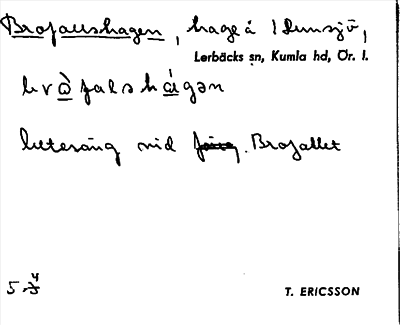 Brofallshagen, hage å 1 Dunsjö,
Lerbäcks sn, Kumla hd, Ör. l.
brò falshágən
beteräng vid Brofallet
5
T. ERICSSON